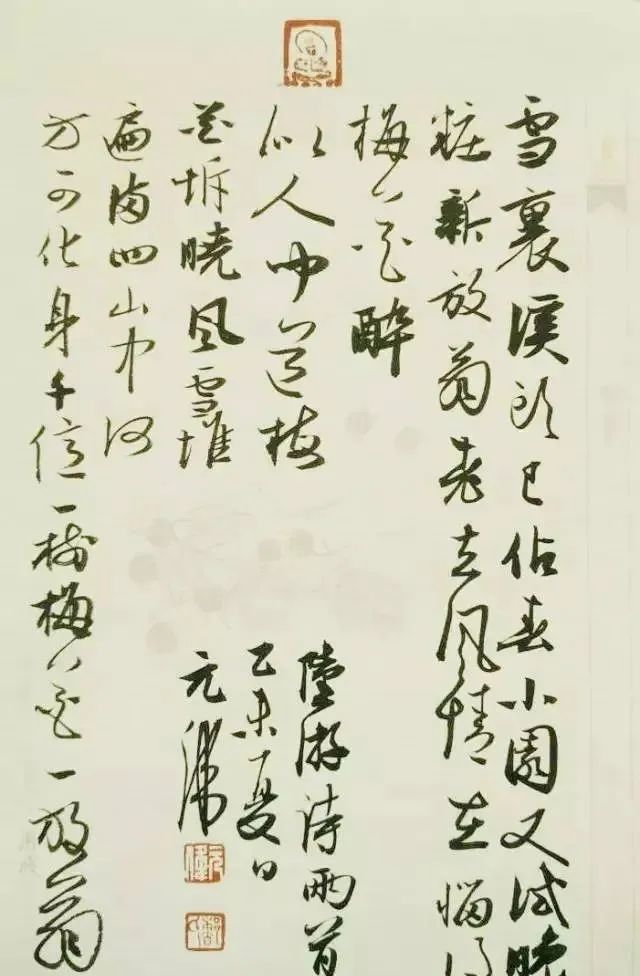 雪裏溪頭已佔春小園又試晚
粧新放翁老去風情在惱得
梅花醉
似人聞道梅
花坼曉風雪堆
遍滿四山中何
方可化身千億一樹梅花一放翁
陸游诗兩首
乙未夏日
元